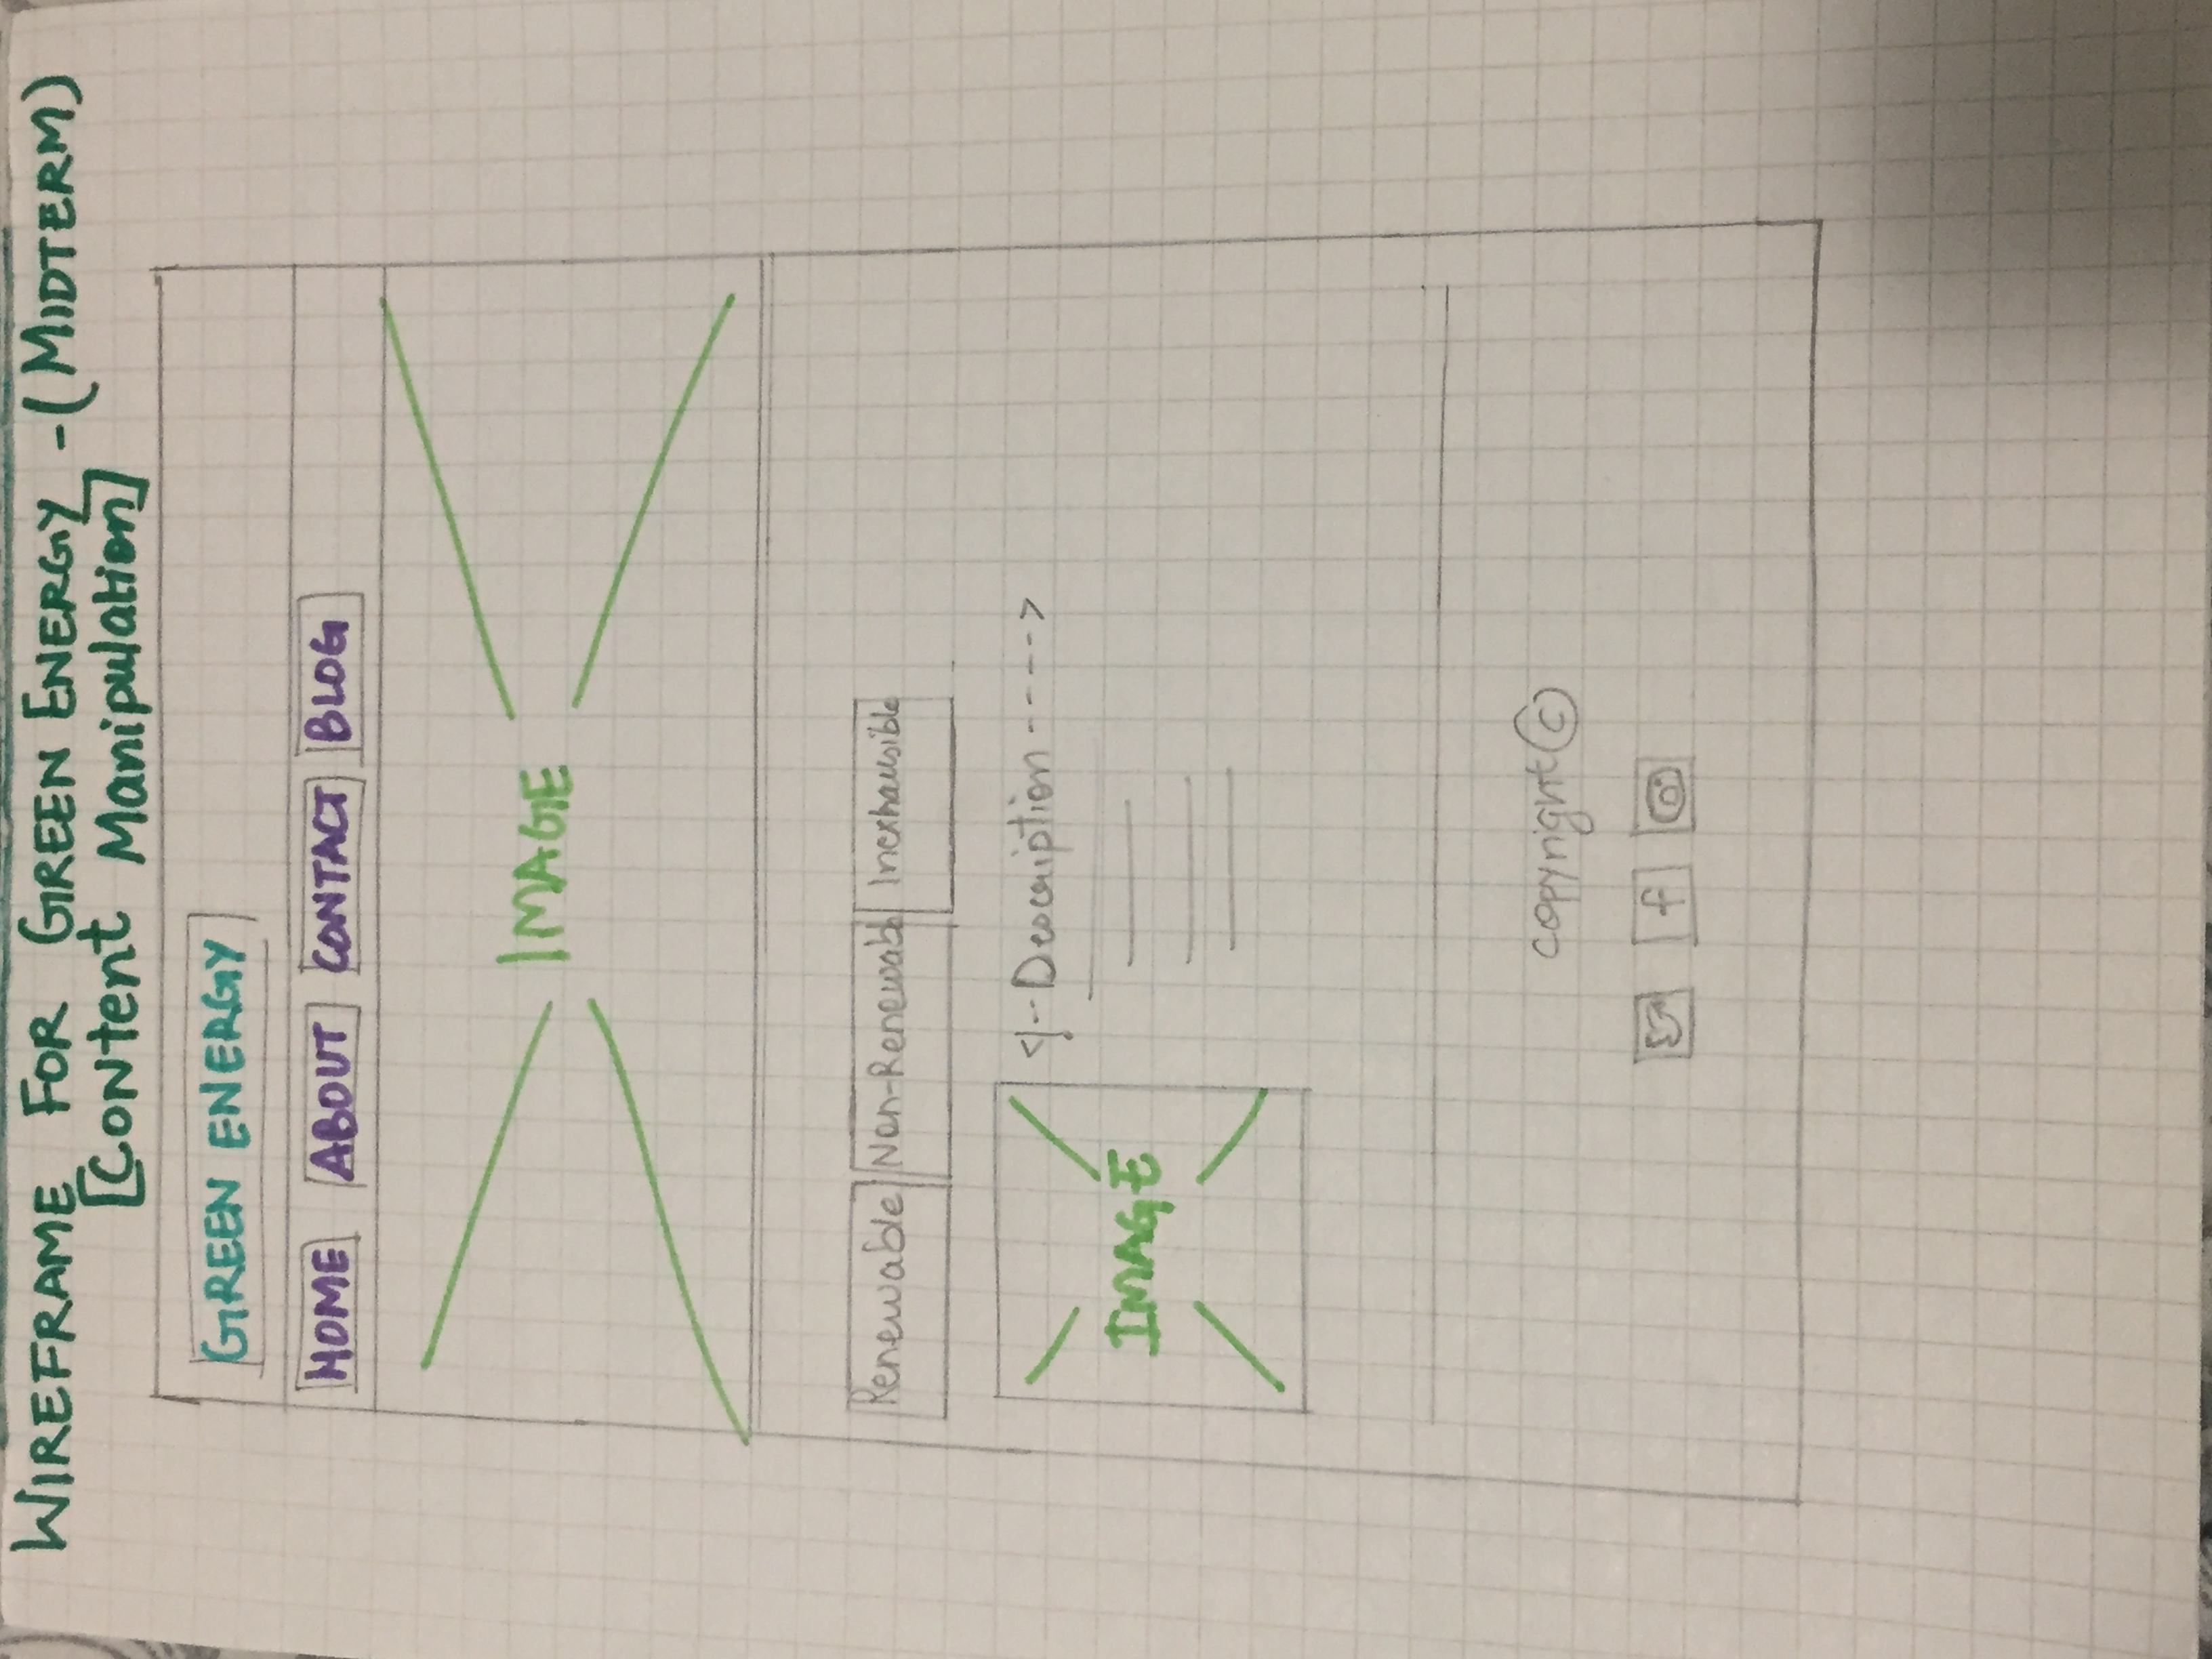 WIREFRAME FOR GREEN ENERGY - (MIDTERM)
[Content Manipulation]
GREEN ENERGY
HOME ABOUT CONTACT BLOG
IMAGE
Renewable Non-Renewabl Inexhausible
<-- Description ---->
IMAGE
copyright ©
f